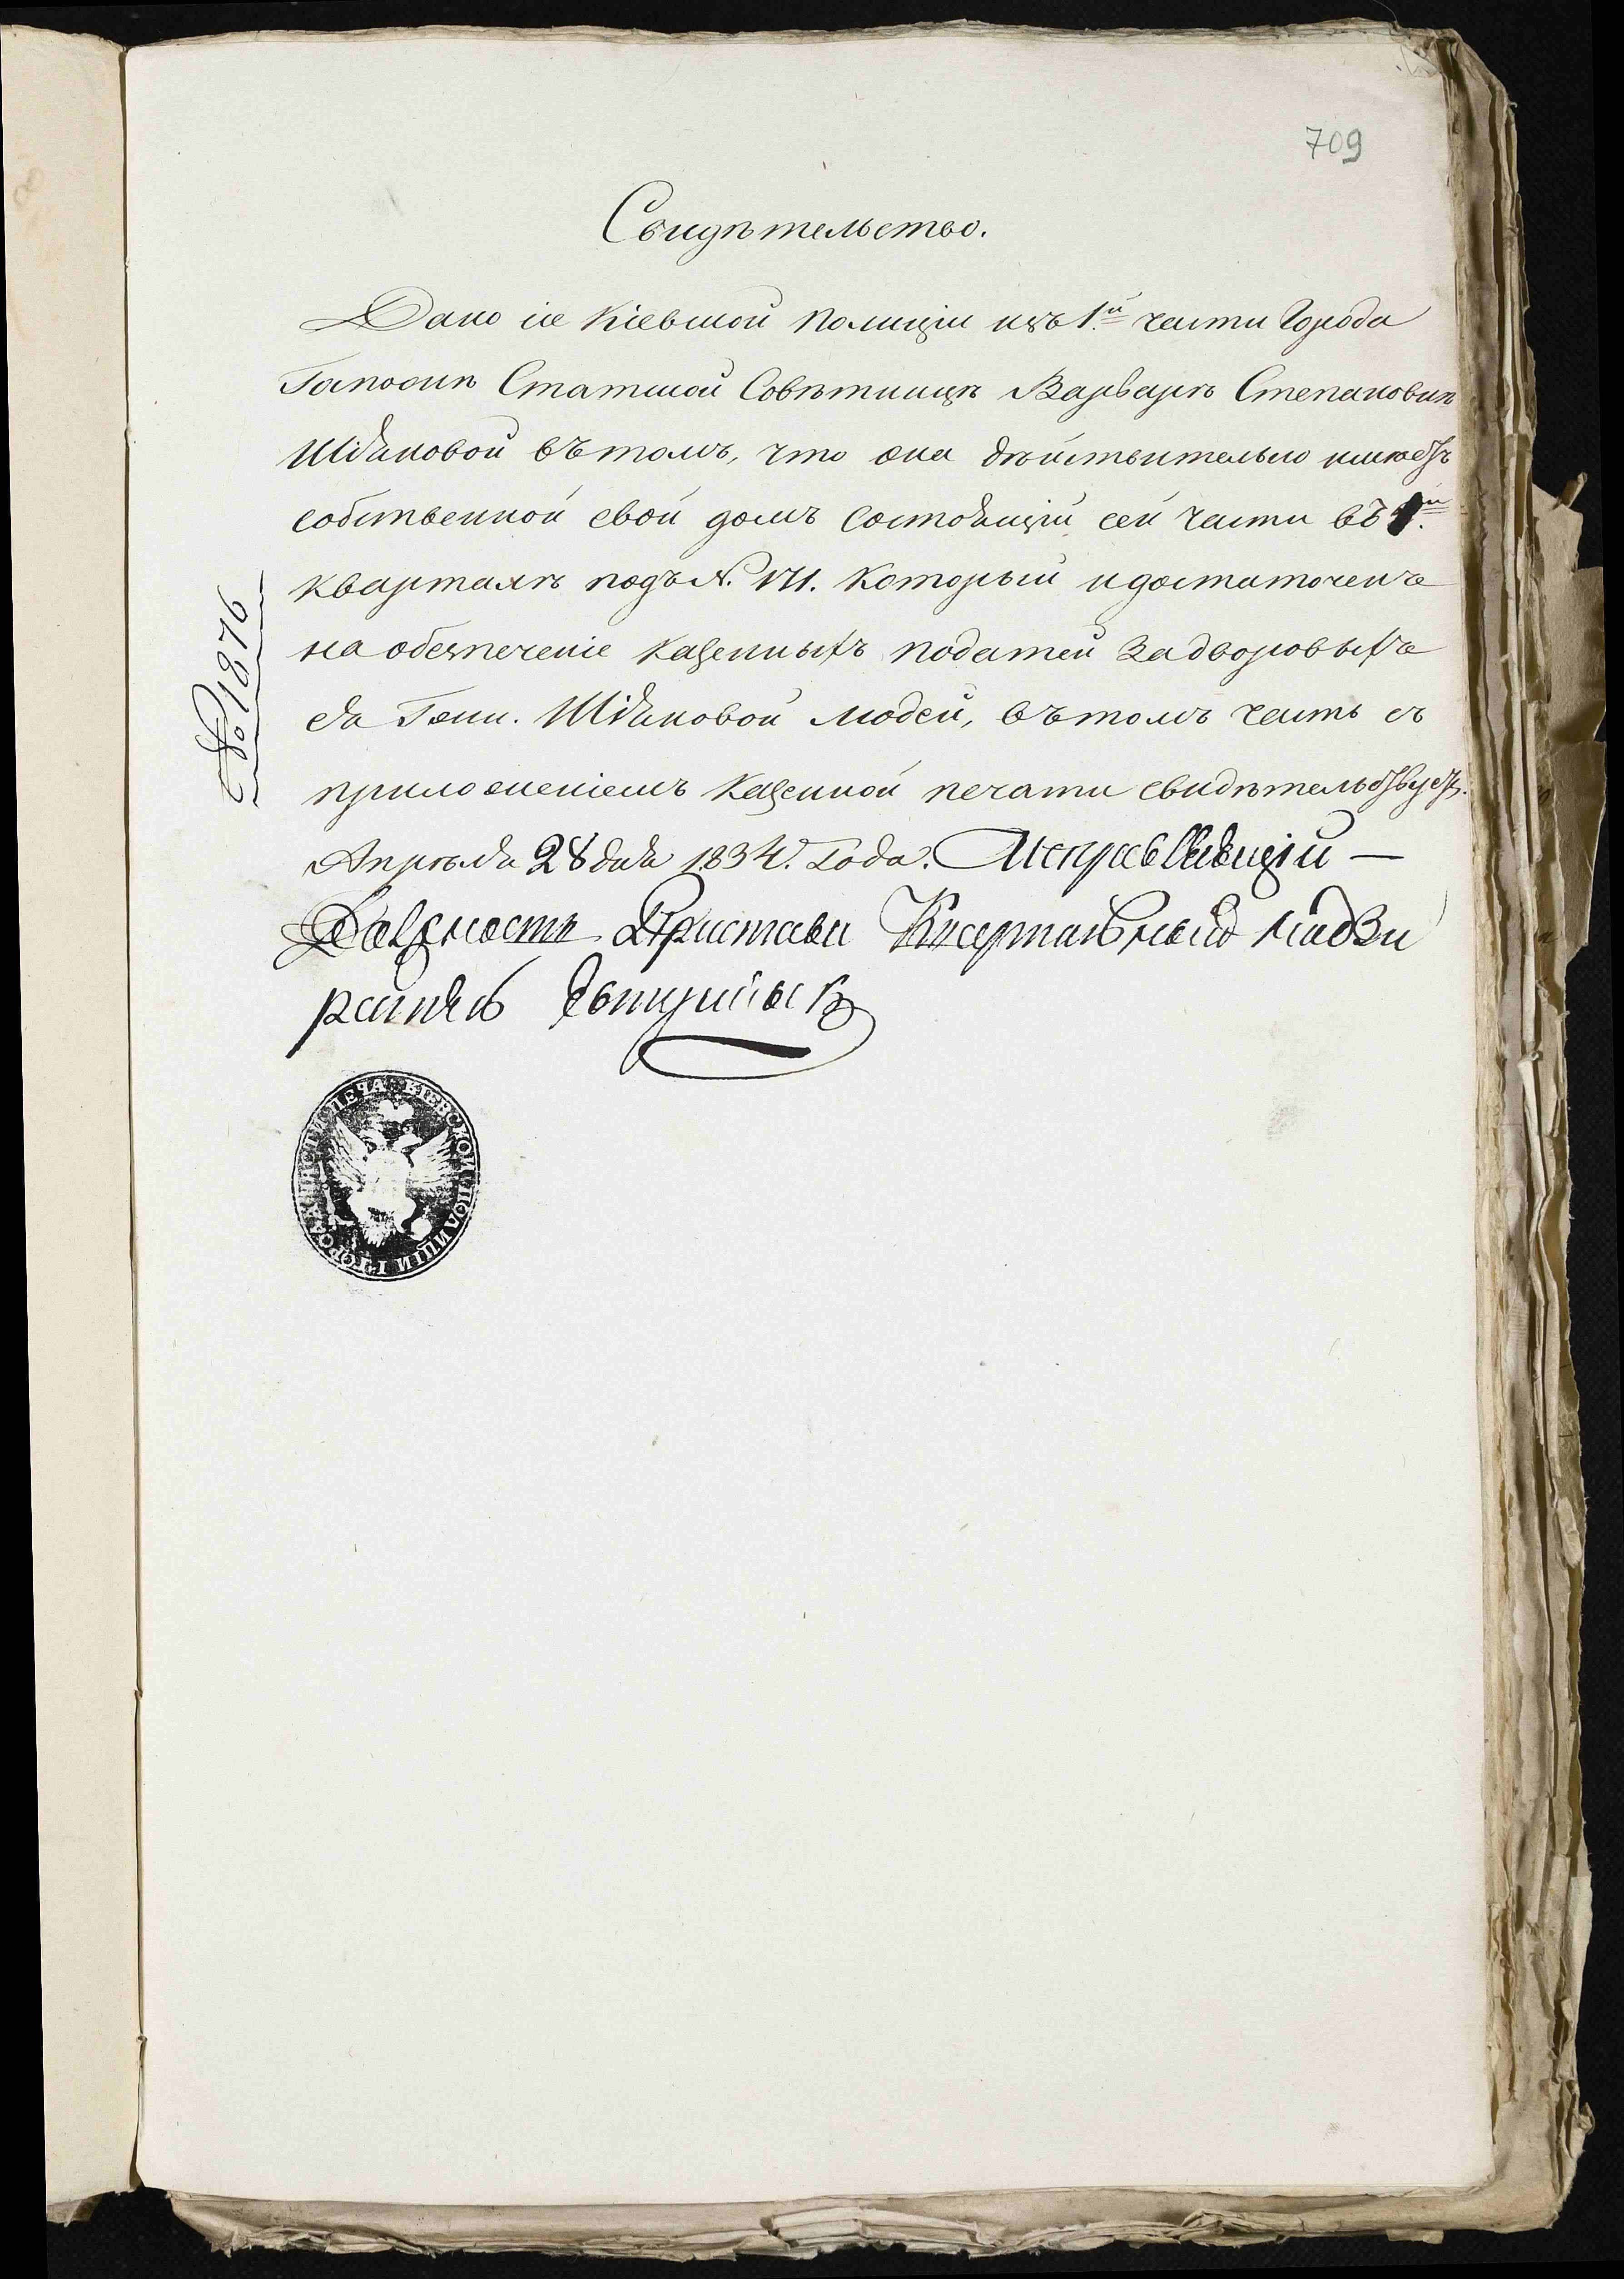 709
Свидѣтельство.
Дано сіе Кіевской Полиціи изъ 1.й части Города
Госпожѣ Статской Совѣтницѣ Варварѣ Степановнѣ
въ томъ, что она дѣйствительно имѣетъ
собственной свой домъ состоящій сей части въ 1.м
кварталѣ подъ N. 171. который и достаточенъ
на обезпеченіе казенныхъ податей За дворовыхъ
ея Гжи. людей, въ томъ часть съ
приложеніемъ казенной печати свидѣтельствуетъ.
Апрѣля 28 дня 1834. Года. Исправляющій —
Должность Пристава Квартальный Надзи
ратель
№ 1876
ПЕЧА. КІЕВСКОЙ ПОЛИЦІИ I ГОРОД. ЧАСТИ